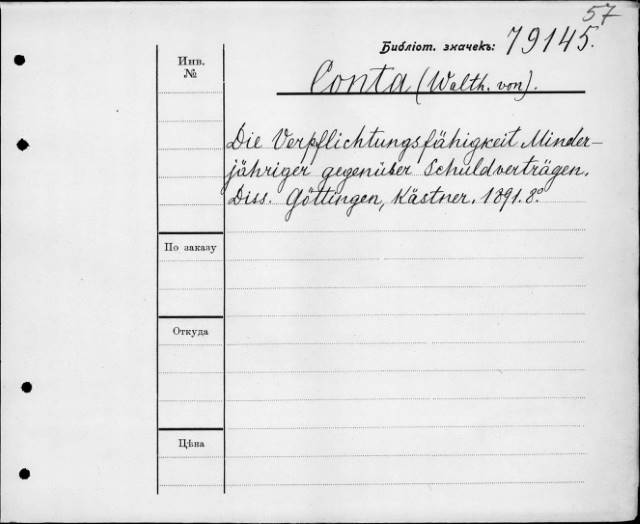 57
Библіот. значекъ: 79145.
Инв.
№
Conta (Walth. von).
Die Verpflichtungsfähigkeit Minder-
jähriger gegenüber Schuldverträgen.
Diss. Göttingen, Kästner. 1891. 8°.
По заказу
Откуда
Цѣна